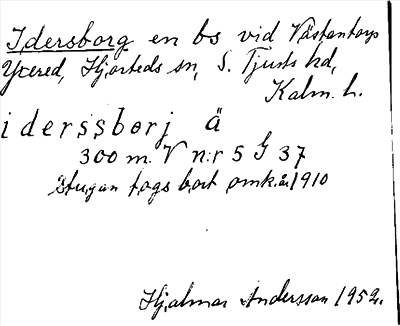 Idersborg en bs vid Västantorp
Yxered, Hjorteds sn, S. Tjusts hd,
Kalm. l.
iderssborj ä
300 m. V n:r 5 G 37
Stugan togs bort omkr. år 1910
Hjalmar Andersson 1952.